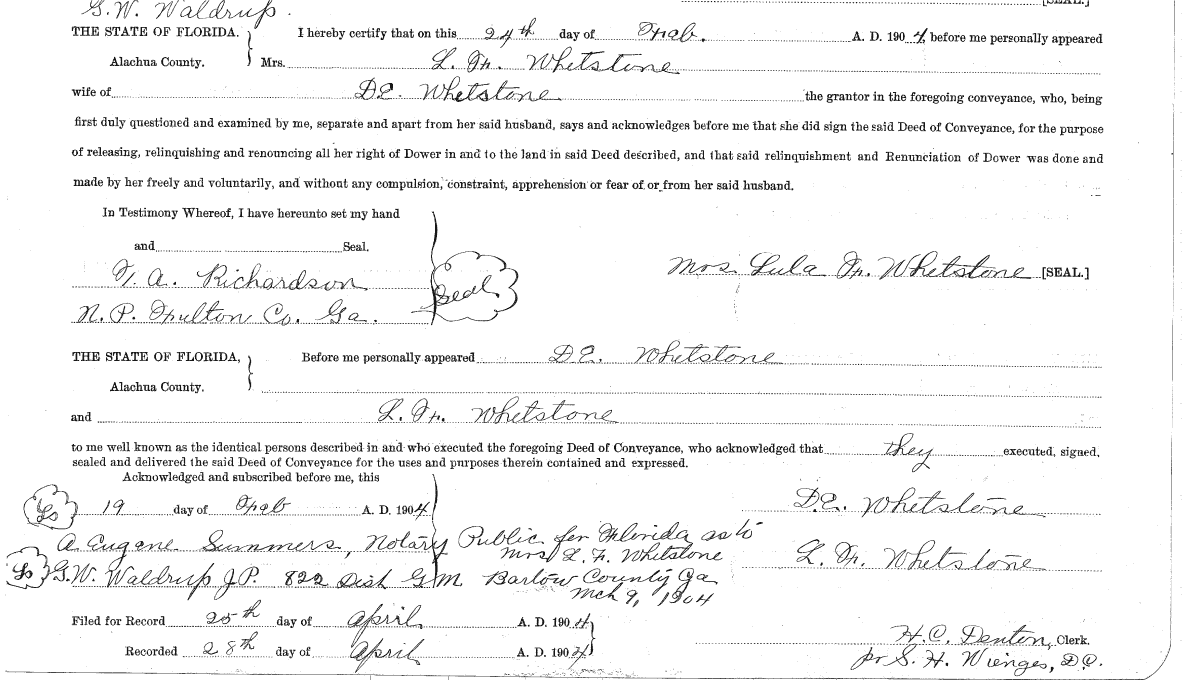 G.W. Waldrup.
[SEAL.]
THE STATE OF FLORIDA. I hereby certify that on this 24th day of Feb. A. D. 1904 before me personally appeared
Alachua County. Mrs. L. F. Whetstone
wife of D.E. Whetstone the grantor in the foregoing conveyance, who, being
first duly questioned and examined by me, separate and apart from her said husband, says and acknowledges before me that she did sign the said Deed of Conveyance, for the purpose
of releasing, relinquishing and renouncing all her right of Dower in and to the land in said Deed described, and that said relinquishment and Renunciation of Dower was done and
made by her freely and voluntarily, and without any compulsion, constraint, apprehension or fear of or from her said husband.
In Testimony Whereof, I have hereunto set my hand
and Seal.
A. Richardson Seal Mrs. Lula F. Whetstone [SEAL.]
N. P. Fulton Co. Ga.
THE STATE OF FLORIDA, Before me personally appeared D.E. Whetstone
Alachua County.
and L. F. Whetstone
to me well known as the identical persons described in and who executed the foregoing Deed of Conveyance, who acknowledged that they executed, signed,
sealed and delivered the said Deed of Conveyance for the uses and purposes therein contained and expressed.
Acknowledged and subscribed before me, this
Ls 19 day of Feb A. D. 1904 D.E. Whetstone
A. Eugene Summers, Notary Public for Florida as to
Mrs L. F. Whetstone L. F. Whetstone
Ls G.W. Waldrup J.P. 822 Dist G M Bartow County Ga
Mch 9, 1904
Filed for Record 25th day of April A. D. 1904
H.C. Denton, Clerk.
Recorded 28th day of April A. D. 1904
pr S. H. Wienges, D.C.